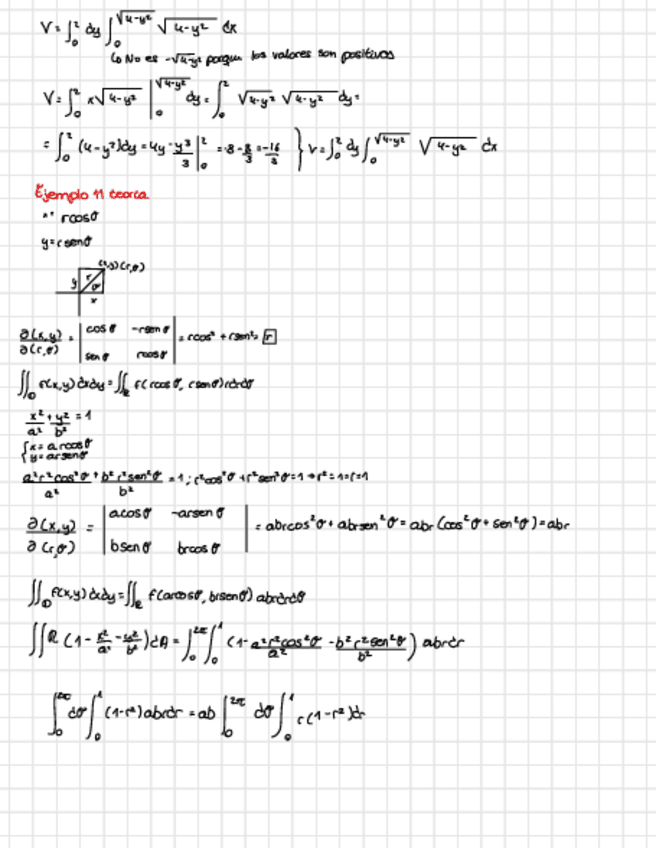 V = ∫₀² dy ∫₀^√(4-y²) √(4-y²) dx
↳ No es -√(4-y²) porque los valores son positivos
V = ∫₀² x√(4-y²) |₀^√(4-y²) dy = ∫₀² √(4-y²) √(4-y²) dy =
= ∫₀² (4-y²)dy = 4y - y³/3 |₀² = 8 - 8/3 = -16/3 } V = ∫₀² dy ∫₀^√(4-y²) √(4-y²) dx
Ejemplo 11 teorca
x = rcosθ
y = rsenθ
(x,y)(r,θ)
y r θ
x
∂(x,y)/∂(r,θ) = | cosθ -rsenθ ; senθ rcosθ | = rcos² + rsen² = r
∬_D f(x,y) dxdy = ∬_R f(rcosθ, rsenθ) rdrdθ
x²/a² + y²/b² = 1
{ x = arcosθ
y = arsenθ
a²r²cos²θ/a² + b²r²sen²θ/b² = 1 ; r²cos²θ + r²sen²θ = 1 → r² = 1 → r = 1
∂(x,y)/∂(r,θ) = | acosθ -arsenθ ; bsenθ brcosθ | = abrcos²θ + abrsen²θ = abr(cos²θ + sen²θ) = abr
∬_D f(x,y) dxdy = ∬_R f(arcosθ, brsenθ) abrdrdθ
∬R (1 - x²/a² - y²/b²)dA = ∫₀^2π ∫₀¹ (1 - a²r²cos²θ/a² - b²r²sen²θ/b²) abrdr
∫₀^2π dθ ∫₀¹ (1-r²)abrdr = ab ∫₀^2π dθ ∫₀¹ r(1-r²)dr